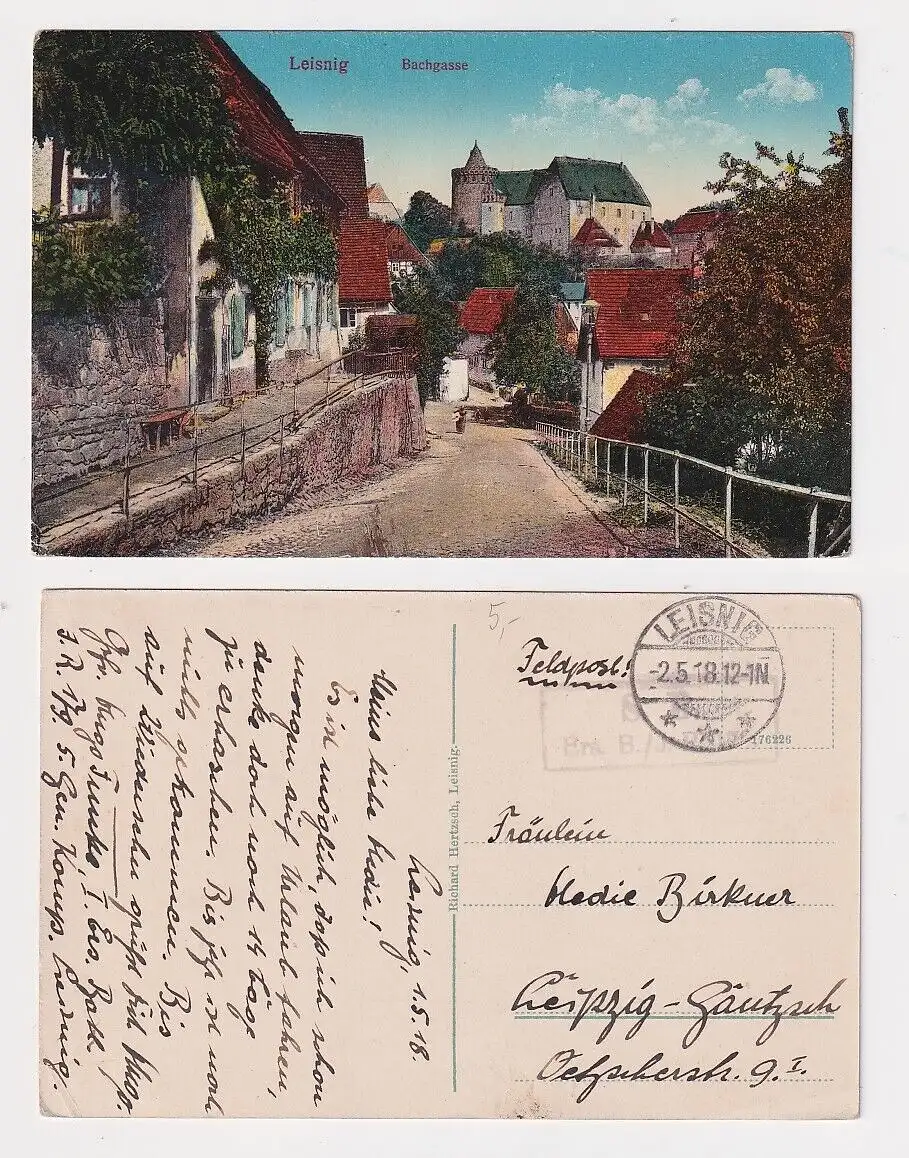 Leisnig Bachgasse
5,-
Feldpost!
LEISNIG
-2.5.18.12-1N
176226
Richard Hertzsch, Leisnig.
Fräulein
Hedie Birkner
Leipzig-Gautzsch
Oetzscherstr. 9. I.
Leisnig, 1.5.18.
Meine liebe Hedie!
Es ist möglich, daß ich schon
morgen auf Urlaub fahren,
denke doch noch 14 Tage
zu erhalten. Bis jetzt ist noch
nichts gekommen. Bis
auf Wiedersehn grüßt Dich Hugo.
Gfr. Hugo I. Ers. Batl.
I.R. 179. 5. Gen. Komp. Leisnig.